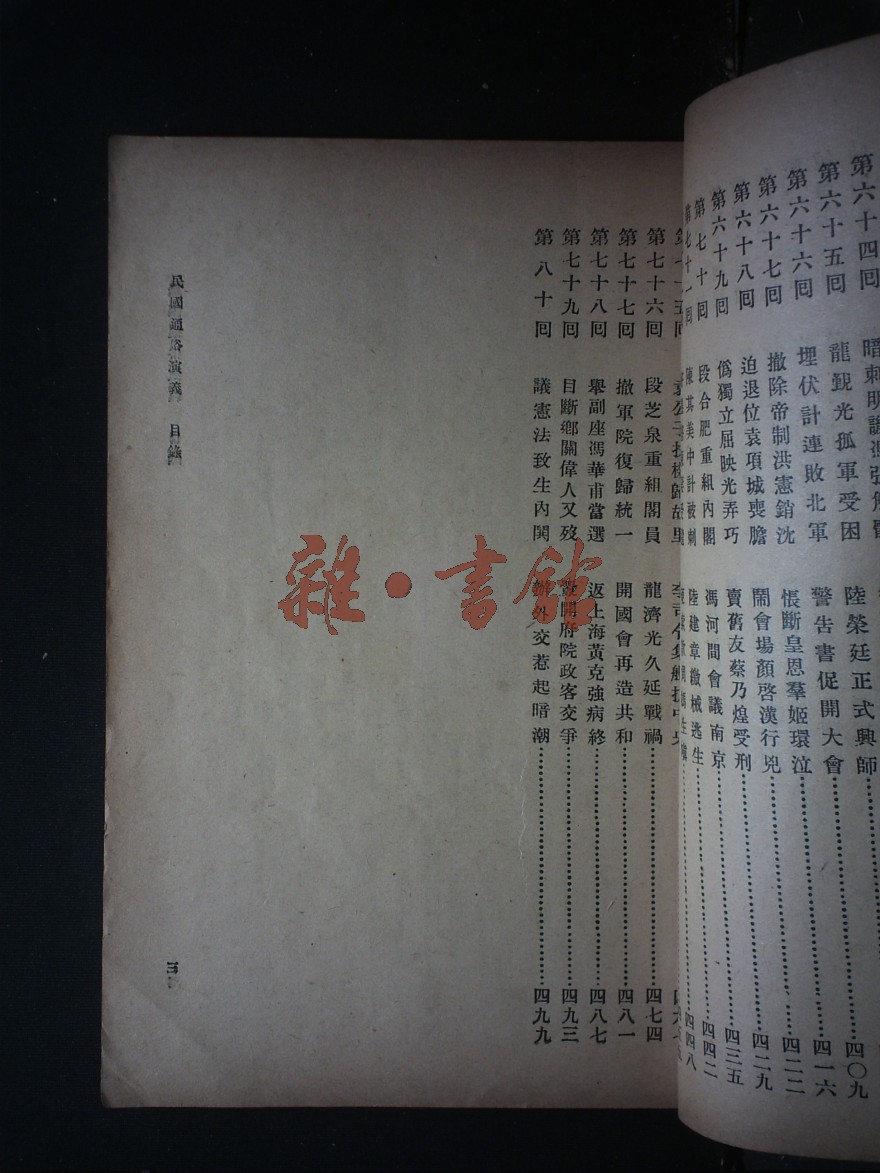 第六十四回
陸榮廷正式興師 四〇九
第六十五回 龍覲光孤軍受困 警告書促開大會 四一六
第六十六回 埋伏計連敗北軍 悵斷皇恩羣姬環泣 四二二
第六十七回 撤除帝制洪憲銷沈 鬧會場顏啓漢行兇 四二九
第六十八回 迫退位袁項城喪膽 賣舊友蔡乃煌受刑 四三五
第六十九回 僞獨立屈映光弄巧 馮河間會議南京 四四二
第七十回 段合肥重組內閣 陸建章繳械逃生 四四八
第七十一回 陳其美中計被刺
第七十六回 段芝泉重組閣員 龍濟光久延戰禍 四七四
第七十七回 撤軍院復歸統一 開國會再造共和 四八一
第七十八回 舉副座馮華甫當選 返上海黃克強病終 四八七
第七十九回 目斷鄉關偉人又歿 釁開府院政客交爭 四九三
第八十回 議憲法致生內鬨 辦外交惹起暗潮 四九九
民國通俗演義 目錄
三
雜·書館